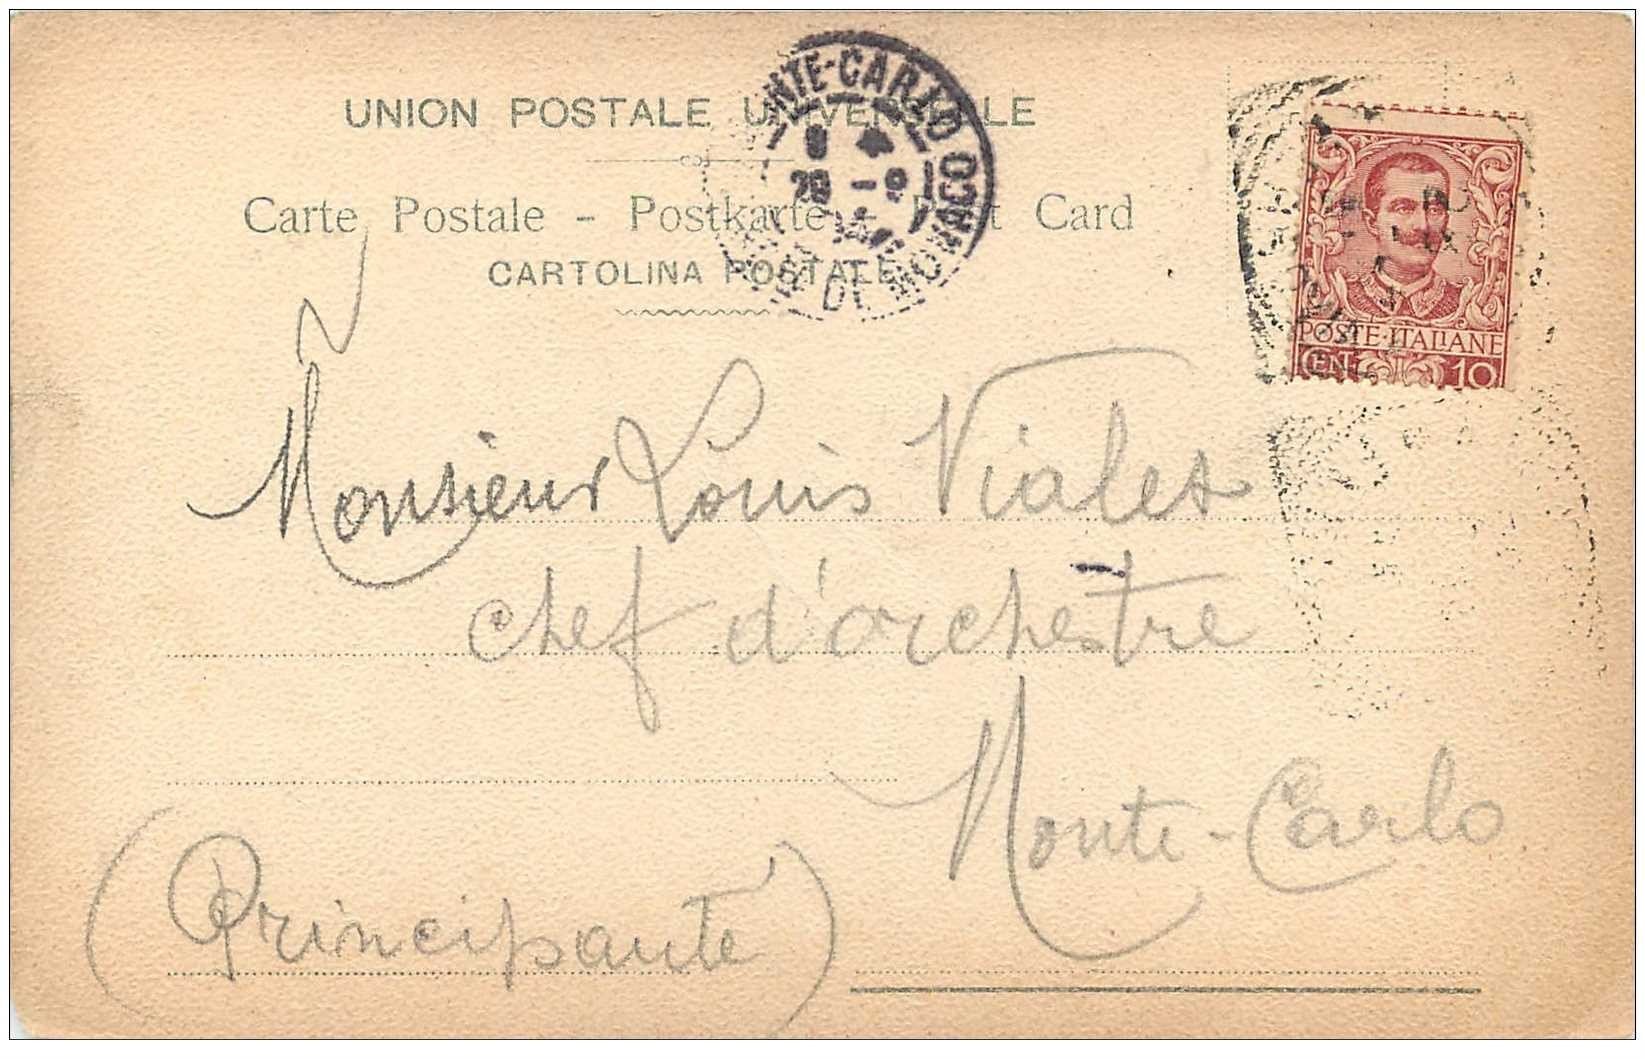 UNION POSTALE UNIVERSELLE
Carte Postale - Postkarte - Post Card
CARTOLINA POSTALE
MONTE-CARLO
MONACO
POSTE·ITALIANE
CENT 10
Monsieur Louis Vialet
chef d'orchestre
Monte-Carlo
(Principauté)